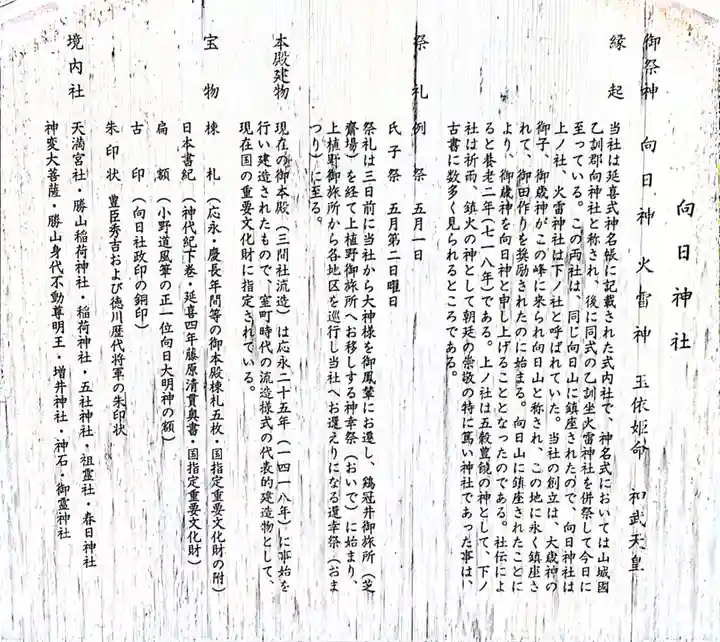 向日神社
御祭神　向日神　火雷神　玉依姫命　神武天皇
縁起
当社は延喜式神名帳に記載された式内社で、神名式においては山城國
乙訓郡向神社と称され、後に同式の乙訓坐火雷神社を併祭して今日に
至っている。この両社は、同じ向日山に鎮座されたので、向日神社は
上ノ社、火雷神社は下ノ社と呼ばれていた。当社の創立は、大歳神の
御子、御歳神がこの峰に来られ向日山と称され、この地に永く鎮座さ
れて、御田作りを奨励されたのに始まる。向日山に鎮座されたことに
より、御歳神を向日神と申し上げることとなったのである。社伝によ
ると養老二年（七一八年）である。上ノ社は五穀豊饒の神として、下ノ
社は祈雨、鎮火の神として朝廷の崇敬の特に篤い神社であった事は、
古書に数多く見られるところである。
祭礼　例祭　五月一日
氏子祭　五月第二日曜日
祭礼は三日前に当社から大神様を御鳳輦にお遷し、鶏冠井御旅所（芝
齋場）を経て上植野御旅所へお移しする神幸祭（おいで）に始まり、
上植野御旅所から各地区を巡行し当社へお還えりになる還幸祭（おま
つり）に至る。
本殿建物　現在の御本殿（三間社流造）は応永二十五年（一四一八年）に事始を
行い建造されたもので、室町時代の流造様式の代表的建造物として、
現在国の重要文化財に指定されている。
宝物　棟札（応永・慶長年間等の御本殿棟札五枚・国指定重要文化財の附）
日本書紀（神代紀下巻・延喜四年藤原清貫奥書・国指定重要文化財）
扁額（小野道風筆の正一位向日大明神の額）
古印（向日社政印の銅印）
朱印状　豊臣秀吉および徳川歴代将軍の朱印状
境内社　天満宮社・勝山稲荷神社・稲荷神社・五社神社・祖霊社・春日神社
神変大菩薩・勝山身代不動尊明王・増井神社・神石・御霊神社